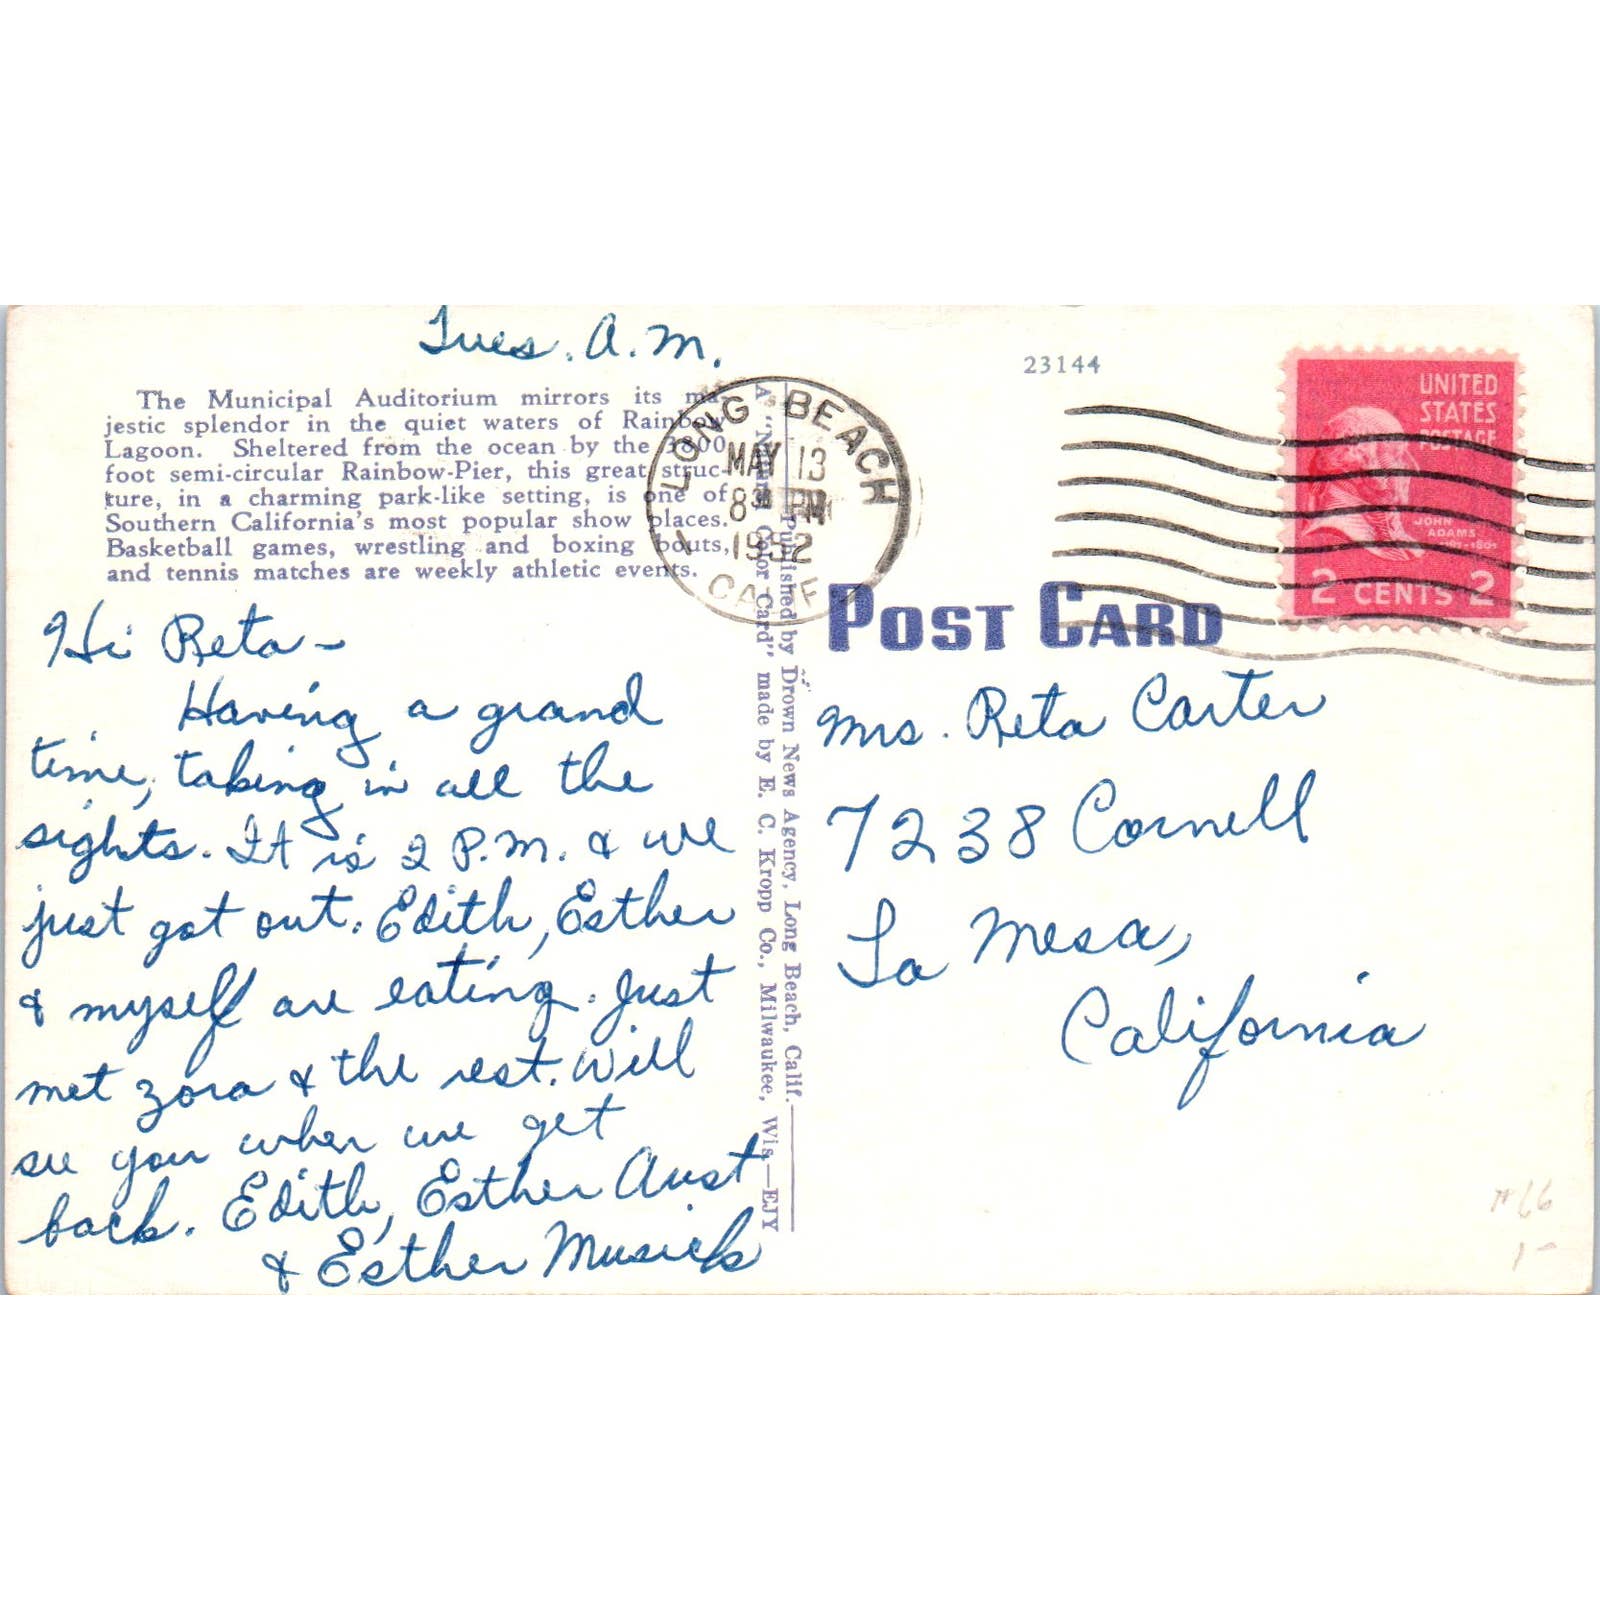 Tues. A.M.
The Municipal Auditorium mirrors its ma-
jestic splendor in the quiet waters of Rainbow
Lagoon. Sheltered from the ocean by the 3800
foot semi-circular Rainbow-Pier, this great struc-
ture, in a charming park-like setting, is one of
Southern California's most popular show places.
Basketball games, wrestling and boxing bouts,
and tennis matches are weekly athletic events.
Hi Reta -
Having a grand
time, taking in all the
sights. It is 2 P.M. & we
just got out. Edith, Esther
& myself are eating. Just
met Zora & the rest. Will
see you when we get
back. Edith, Esther Aust
& Esther Musick
Published by Drown News Agency, Long Beach, Calif.
A "Natural Color Card" made by E. C. Kropp Co., Milwaukee, Wis.—EJY
LONG BEACH
MAY 13
8 30 PM
1952
CALIF
1
23144
UNITED
STATES
POSTAGE
JOHN
ADAMS
1797-1801
2 CENTS 2
POST CARD
Mrs. Reta Carter
7238 Cornell
La Mesa,
California
#66
1-